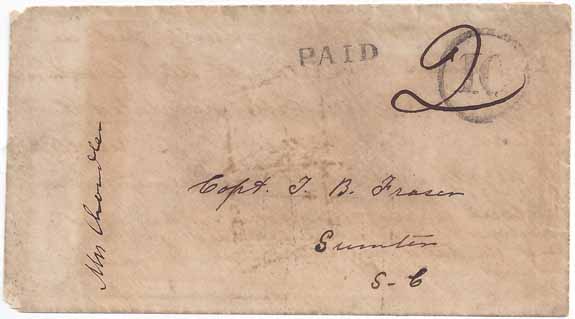 PAID
10
D
Capt. T. B. Fraser
Sumter
S-C
Mrs Chandler